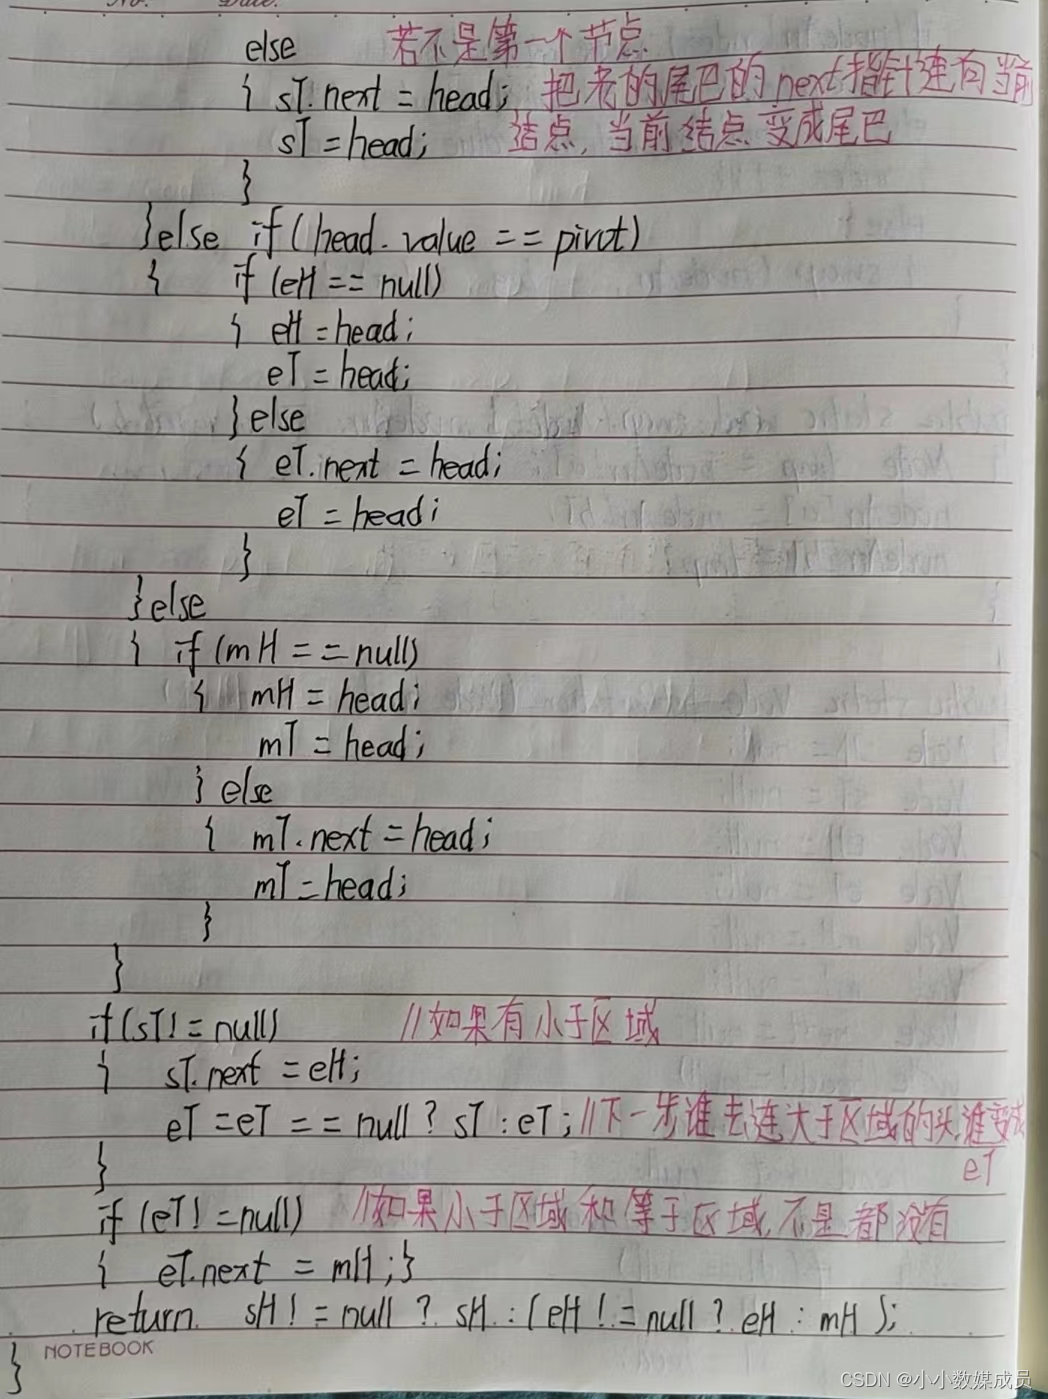 else 若不是第一个节点
{ sT.next = head; 把老的尾巴的next指针连向当前
sT = head; 结点,当前结点变成尾巴
}
}else if(head.value == pivot)
{ if(eH == null)
{ eH = head;
eT = head;
}else
{ eT.next = head;
eT = head;
}
}else
{ if(mH == null)
{ mH = head;
mT = head;
} else
{ mT.next = head;
mT = head;
}
}
if(sT != null) //如果有小于区域
{ sT.next = eH;
eT = eT == null ? sT : eT; //下一步谁去连大于区域的头,谁变成
} eT
if (eT != null) //如果小于区域和等于区域,不是都没有
{ eT.next = mH;}
return sH != null ? sH : (eH != null ? eH : mH );
NOTEBOOK
}
CSDN @小小数媒成员